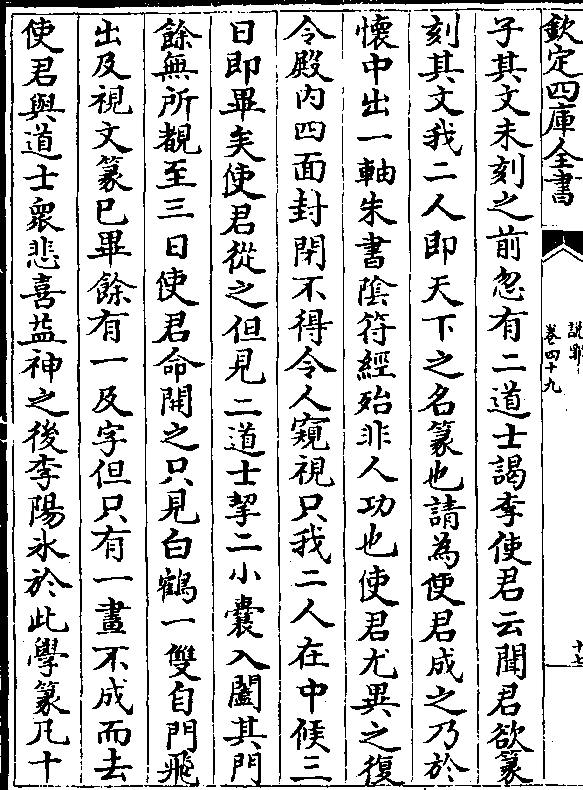 欽定四庫全書
說郛
卷四十九
子其文未刻之前忽有二道士謁李使君云聞君欲篆
刻其文我二人即天下之名篆也請為使君成之乃於
懷中出一軸朱書陰符經殆非人功也使君尤異之復
令殿内四面封閉不得令人窺視只我二人在中候三
日即畢矣使君從之但見二道士挈二小囊入闔其門
餘無所覩至三日使君命開之只見白鶴一雙自門飛
出及視文篆已畢餘有一及字但只有一畫不成而去
使君與道士衆悲喜益神之後李陽氷於此學篆凡十